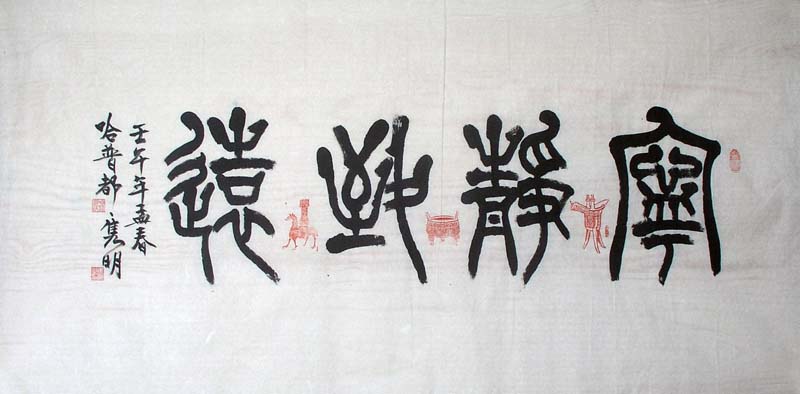 寧靜致遠
壬午年孟春
哈普都·隽明